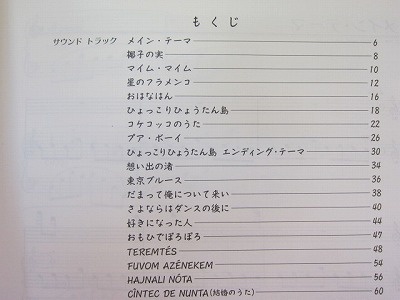 もくじ
サウンド トラック メイン・テーマ 6
椰子の実 8
マイム・マイム 10
星のフラメンコ 12
おはなはん 16
ひょっこりひょうたん島 18
コケコッコのうた 22
プア・ボーイ 26
ひょっこりひょうたん島 エンディング・テーマ 30
想い出の渚 34
東京ブルース 36
だまって俺について来い 38
さよならはダンスの後に 40
好きになった人 44
おもひでぽろぽろ 47
TEREMTÉS 48
FUVOM AZÉNEKEM 54
HAJNALI NÓTA 56
CÎNTEC DE NUNTA(結婚のうた) 60